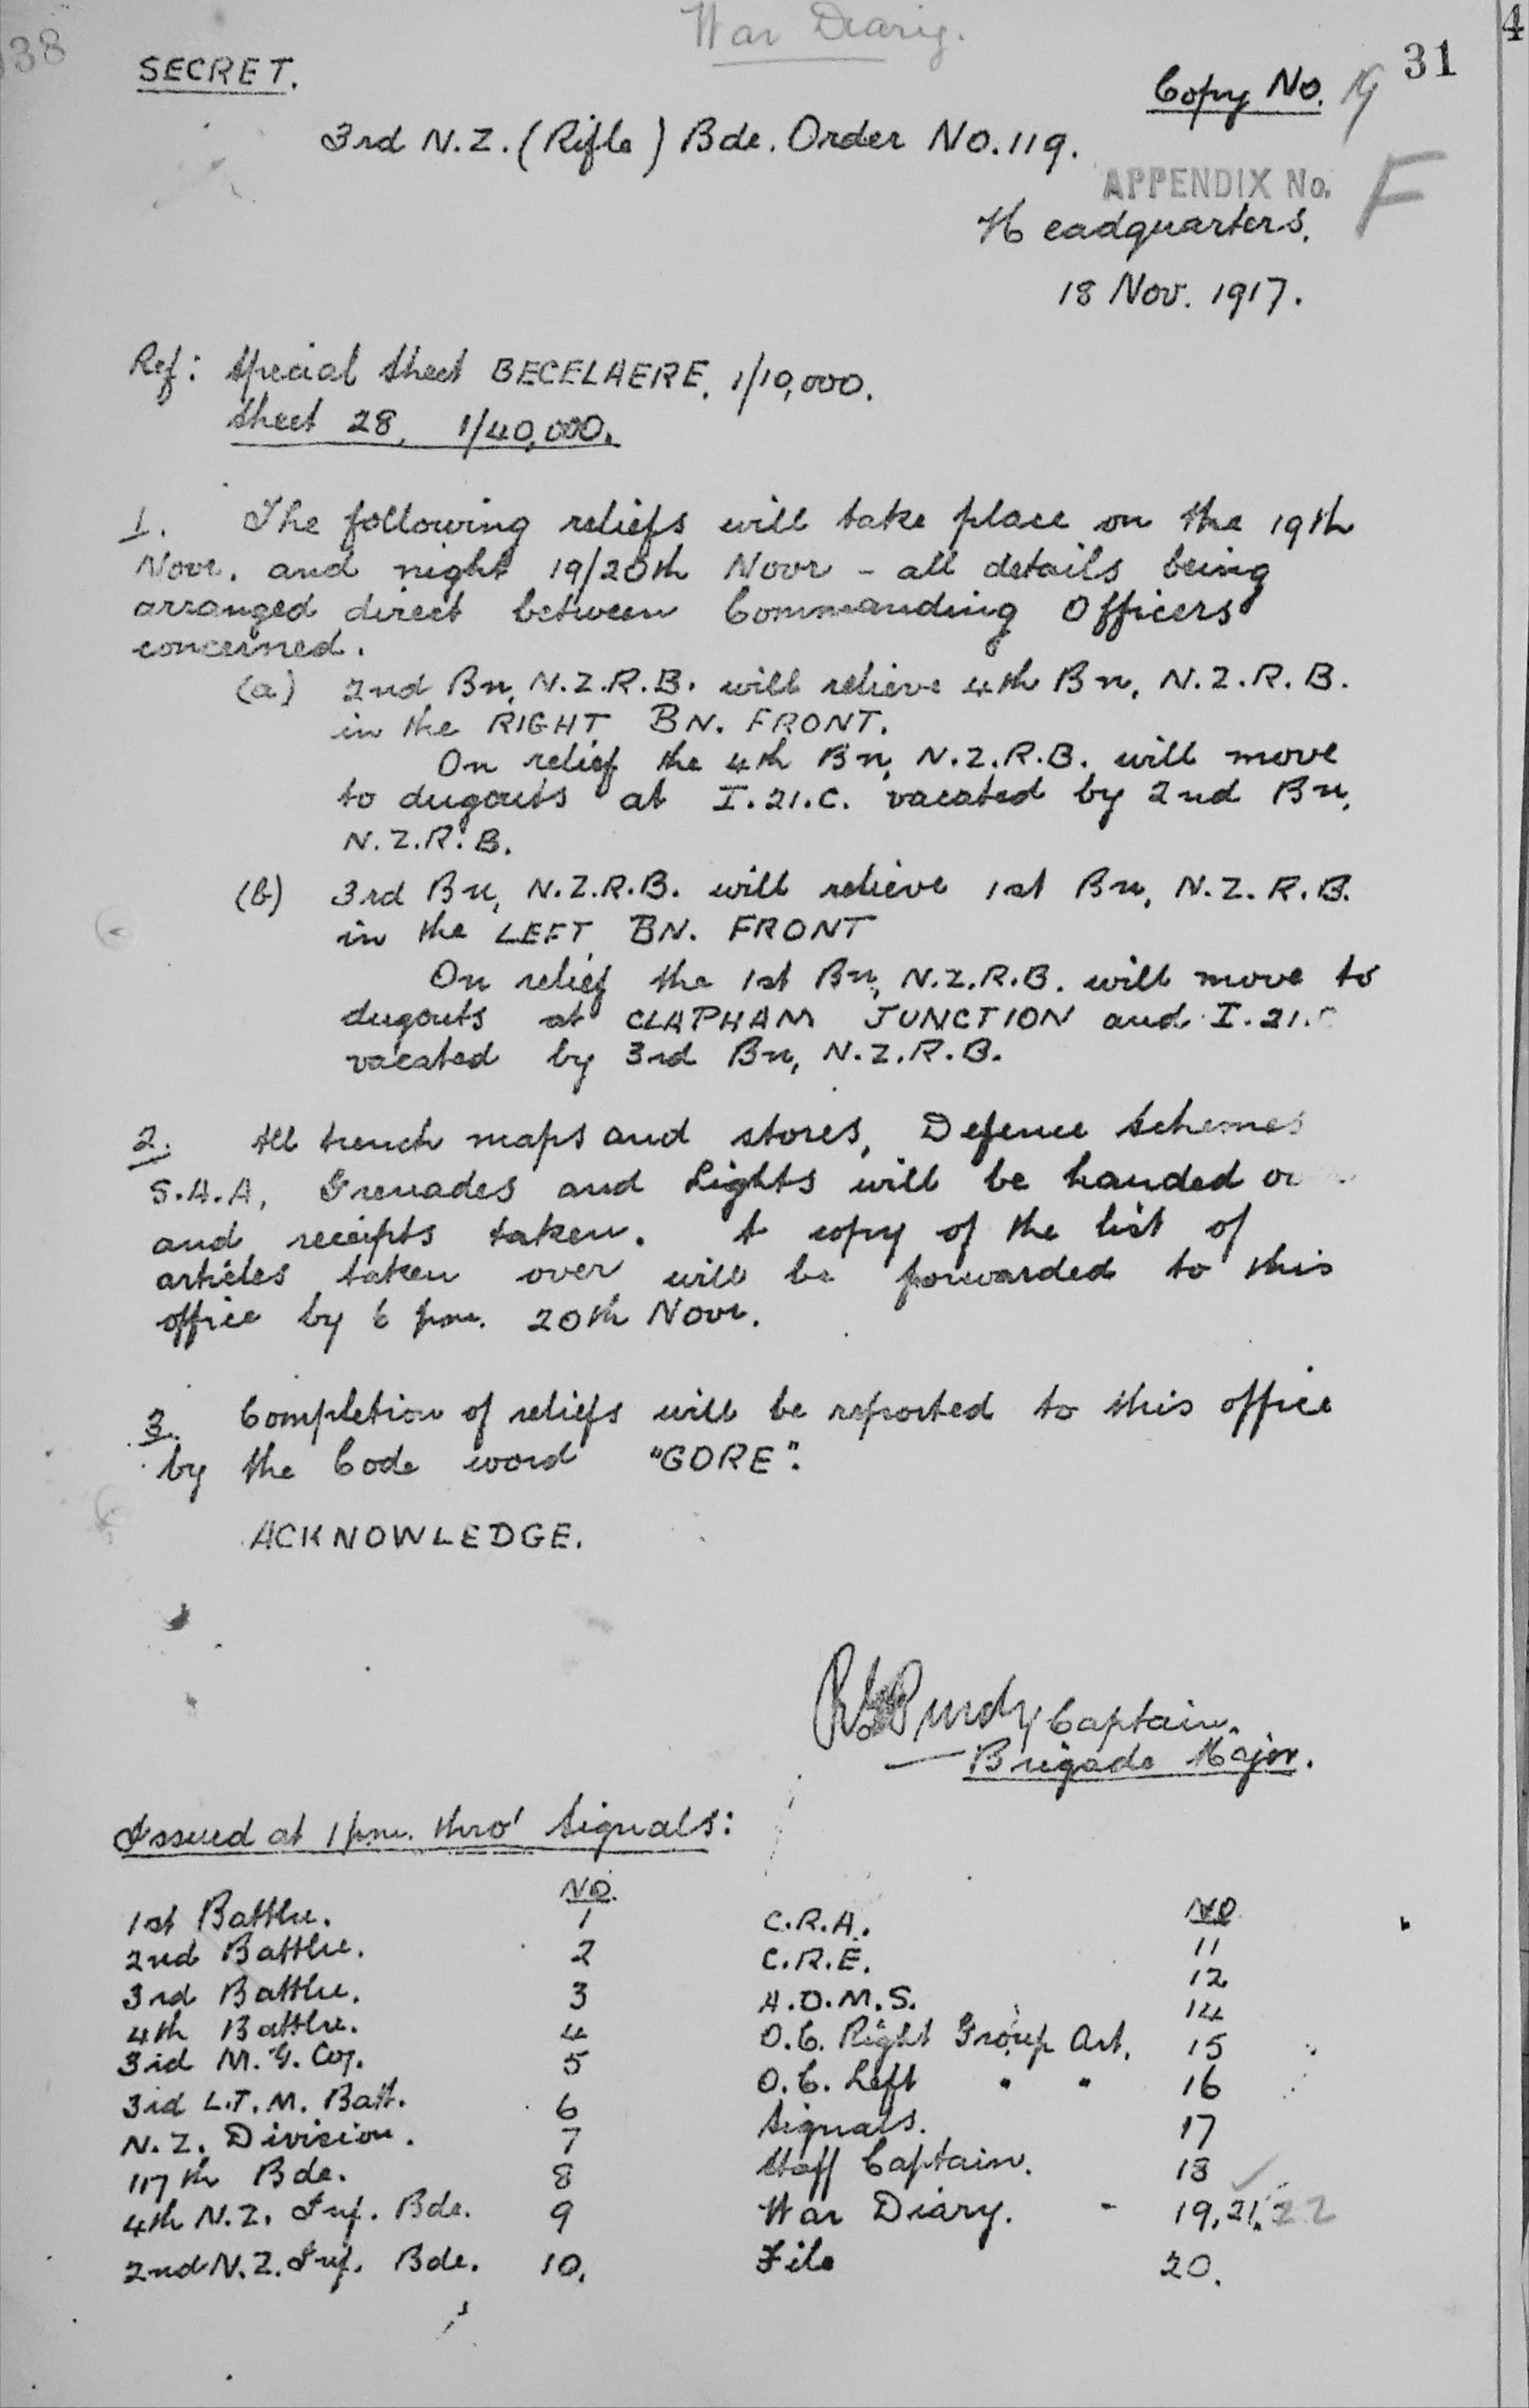 War Diary.
38
4
31
SECRET.
Copy No. 19
3rd N.Z. (Rifle) Bde. Order No. 119.
APPENDIX No. F
Headquarters.
18 Nov. 1917.
Ref: Special Sheet BECELAERE. 1/10,000.
Sheet 28, 1/40,000.
1. The following reliefs will take place on the 19th
Novr. and night 19/20th Novr - all details being
arranged direct between Commanding Officers
concerned.
(a) 2nd Bn, N.Z.R.B. will relieve 4th Bn, N.Z.R.B.
in the RIGHT BN. FRONT.
On relief the 4th Bn, N.Z.R.B. will move
to dugouts at I.21.C. vacated by 2nd Bn,
N.Z.R.B.
(b) 3rd Bn, N.Z.R.B. will relieve 1st Bn, N.Z.R.B.
in the LEFT BN. FRONT
On relief the 1st Bn, N.Z.R.B. will move to
dugouts at CLAPHAM JUNCTION and I.21.
vacated by 3rd Bn, N.Z.R.B.
2. All trench maps and stores, Defence Schemes
S.A.A, Grenades and Lights will be handed
and receipts taken. A copy of the list of
articles taken over will be forwarded to this
office by 6 pm. 20th Novr.
3. Completion of reliefs will be reported to this office
by the Code word "GORE".
ACKNOWLEDGE.
Purdy Captain.
Brigade Major.
Issued at 1 pm. thro' Signals:
No.
1st Battln. 1
2nd Battln. 2
3rd Battln. 3
4th Battln. 4
3rd M.G. Coy. 5
3rd L.T.M. Batt. 6
N.Z. Division. 7
117th Bde. 8
4th N.Z. Inf. Bde. 9
2nd N.Z. Inf. Bde. 10.
No
C.R.A. 11
C.R.E. 12
A.D.M.S. 14
O.C. Right Group Art. 15
O.C. Left " " 16
Signals. 17
Staff Captain. 18
War Diary. - 19, 21, 22
File 20.